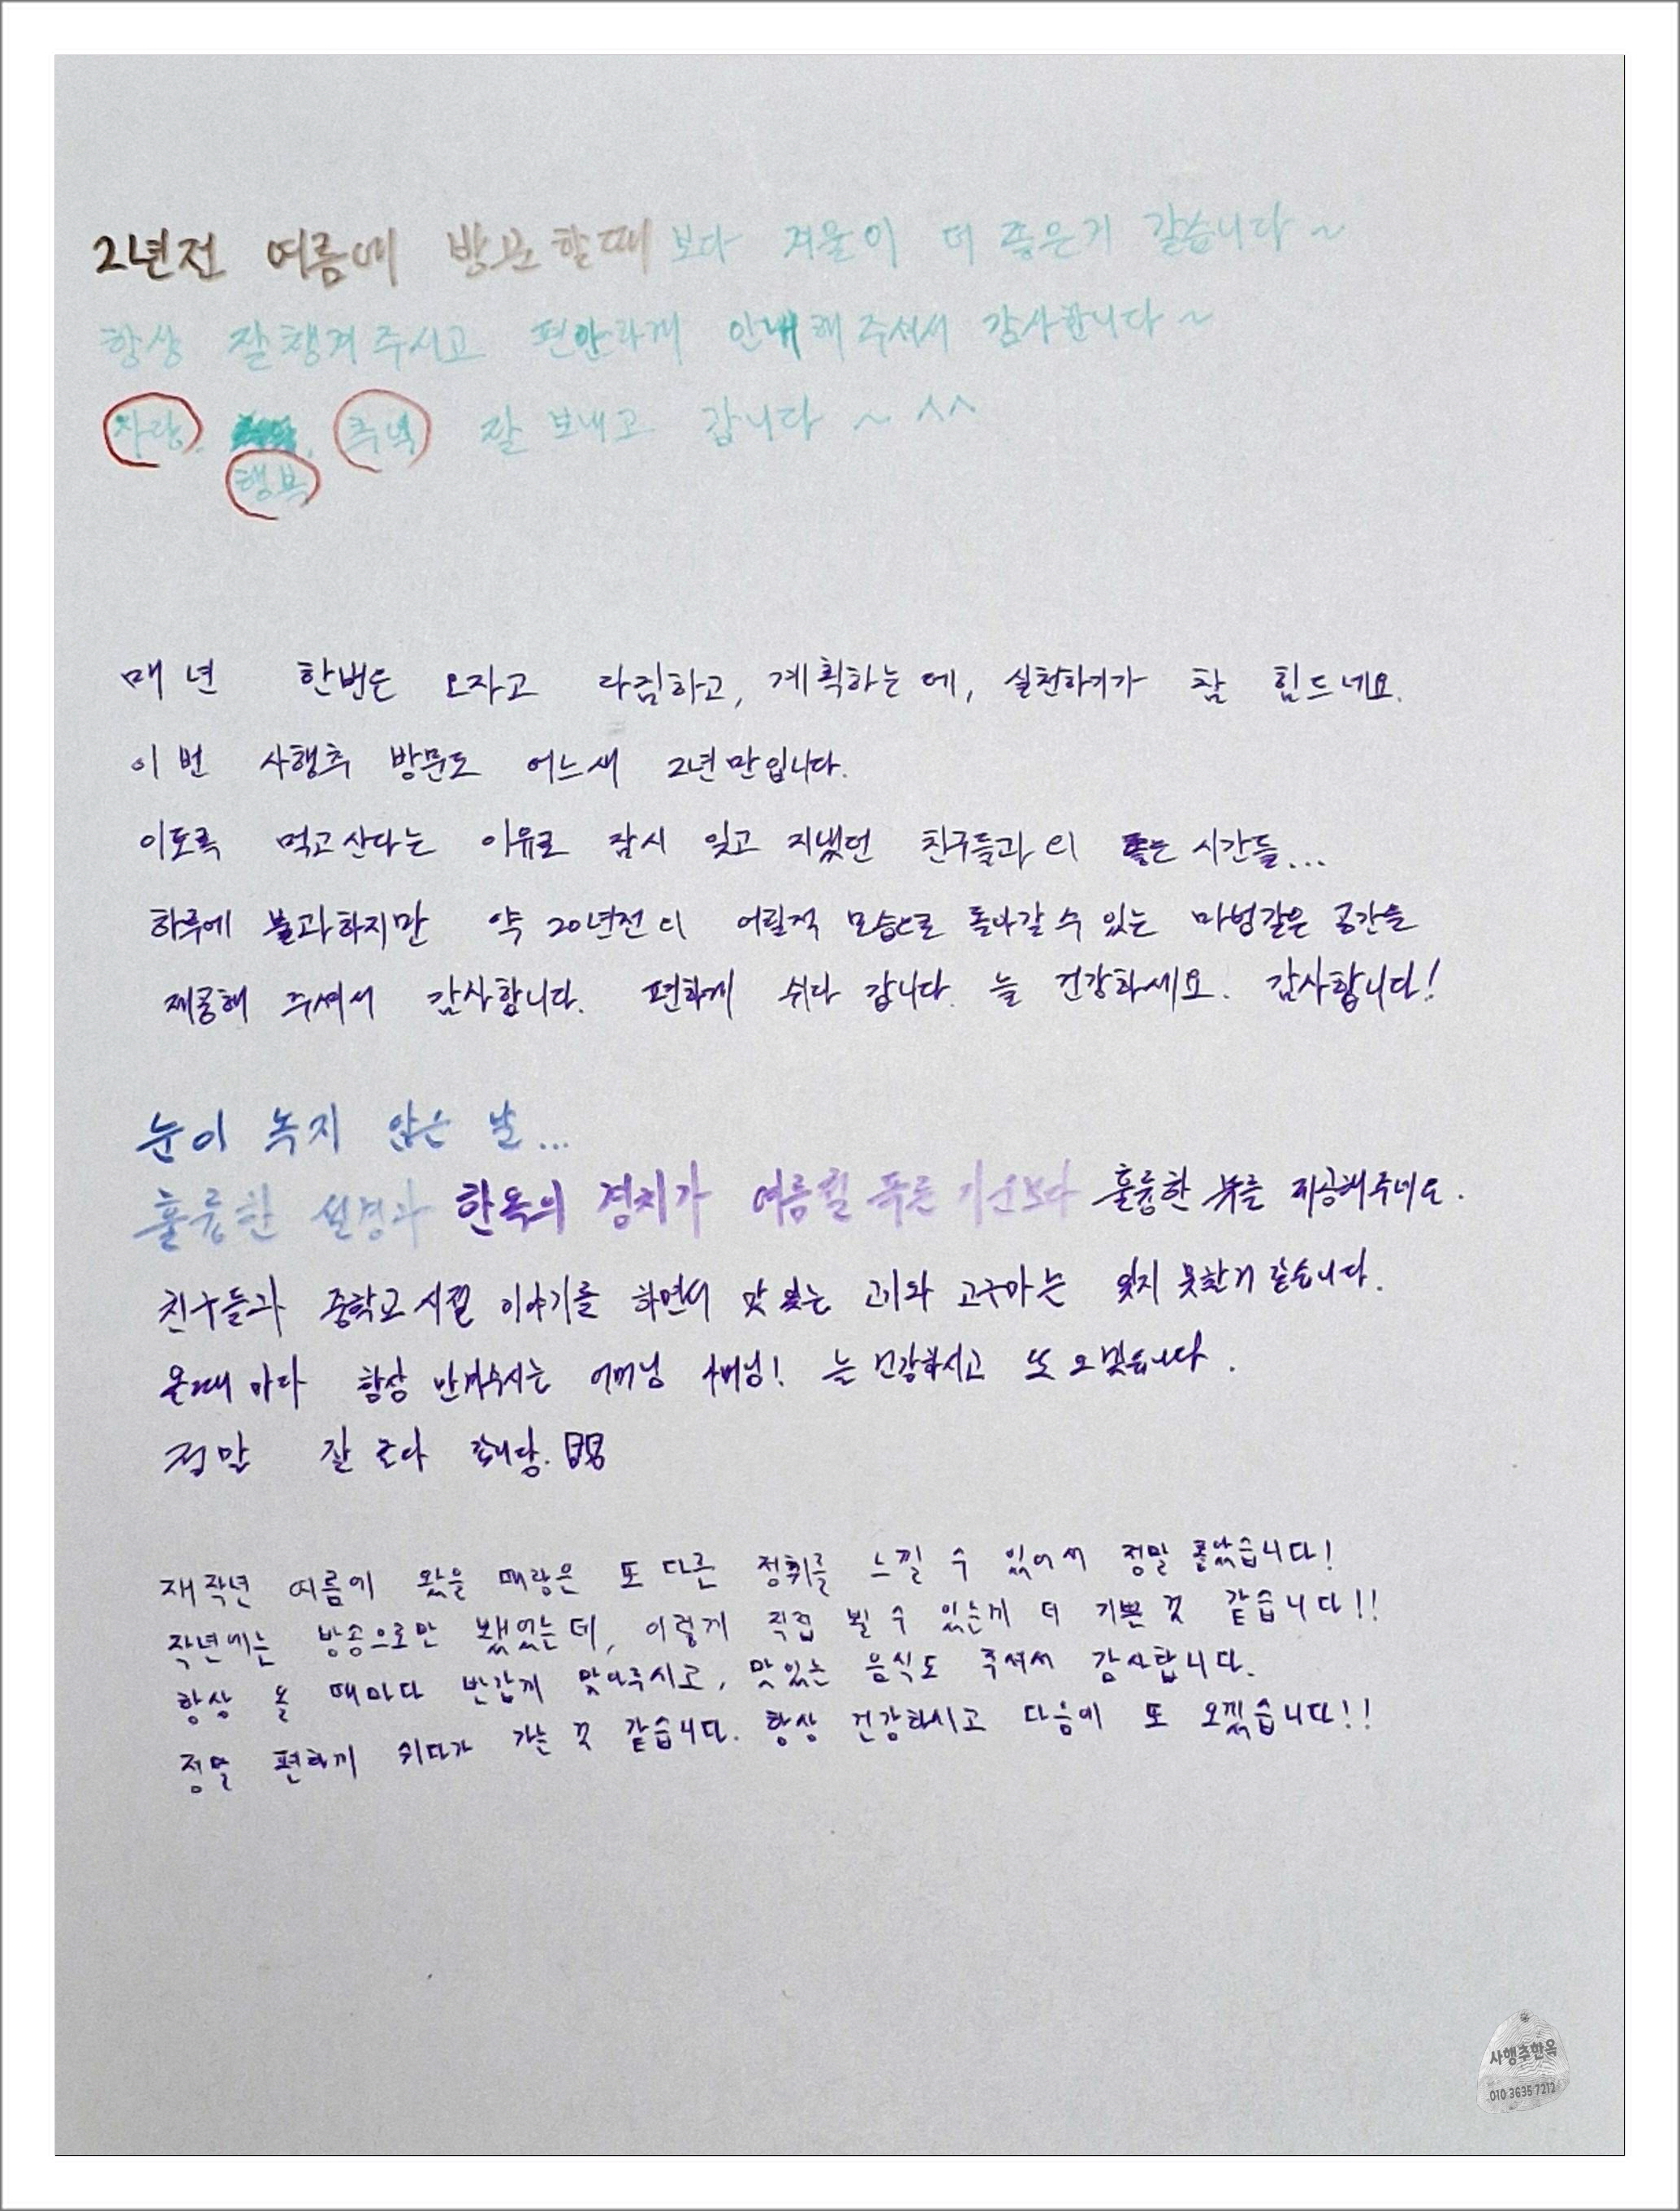 2년전 여름에 방문할때 보다 겨울이 더 좋은거 같습니다~
항상 잘챙겨주시고 편안하게 안내해주셔서 감사합니다~
사랑, 추억 잘 보내고 갑니다~ ^^
행복
매년 한번은 오자고 다짐하고, 계획하는데, 실천하기가 참 힘드네요.
이번 사행추 방문도 어느새 2년만입니다.
이토록 먹고산다는 이유로 잠시 잊고 지냈던 친구들과의 좋은 시간들...
하루에 불과하지만 약 20년전의 어릴적 모습으로 돌아갈 수 있는 마법같은 공간을
제공해 주셔서 감사합니다. 편하게 쉬다 갑니다. 늘 건강하세요. 감사합니다!
눈이 녹지 않은 날...
훌륭한 설경과 한옥의 경치가 여름철 푸른 기운보다 훌륭한 뷰를 제공해주네요.
친구들과 중학교시절 이야기를 하면서 맛있는 고기와 고구마는 잊지 못할거 같습니다.
올때마다 항상 반겨주시는 어머님 아버님! 늘 건강하시고 또 오겠습니다.
정말 잘 쉬다 갑니당.
재작년 여름에 왔을 때랑은 또 다른 정취를 느낄 수 있어서 정말 좋았습니다!
작년에는 방송으로만 뵀었는데, 이렇게 직접 뵐 수 있는게 더 기쁜 것 같습니다!!
항상 올 때마다 반갑게 맞아주시고, 맛있는 음식도 주셔서 감사합니다.
정말 편하게 쉬다가 가는 것 같습니다. 항상 건강하시고 다음에 또 오겠습니다!!
사행추한옥
010 3635 7212